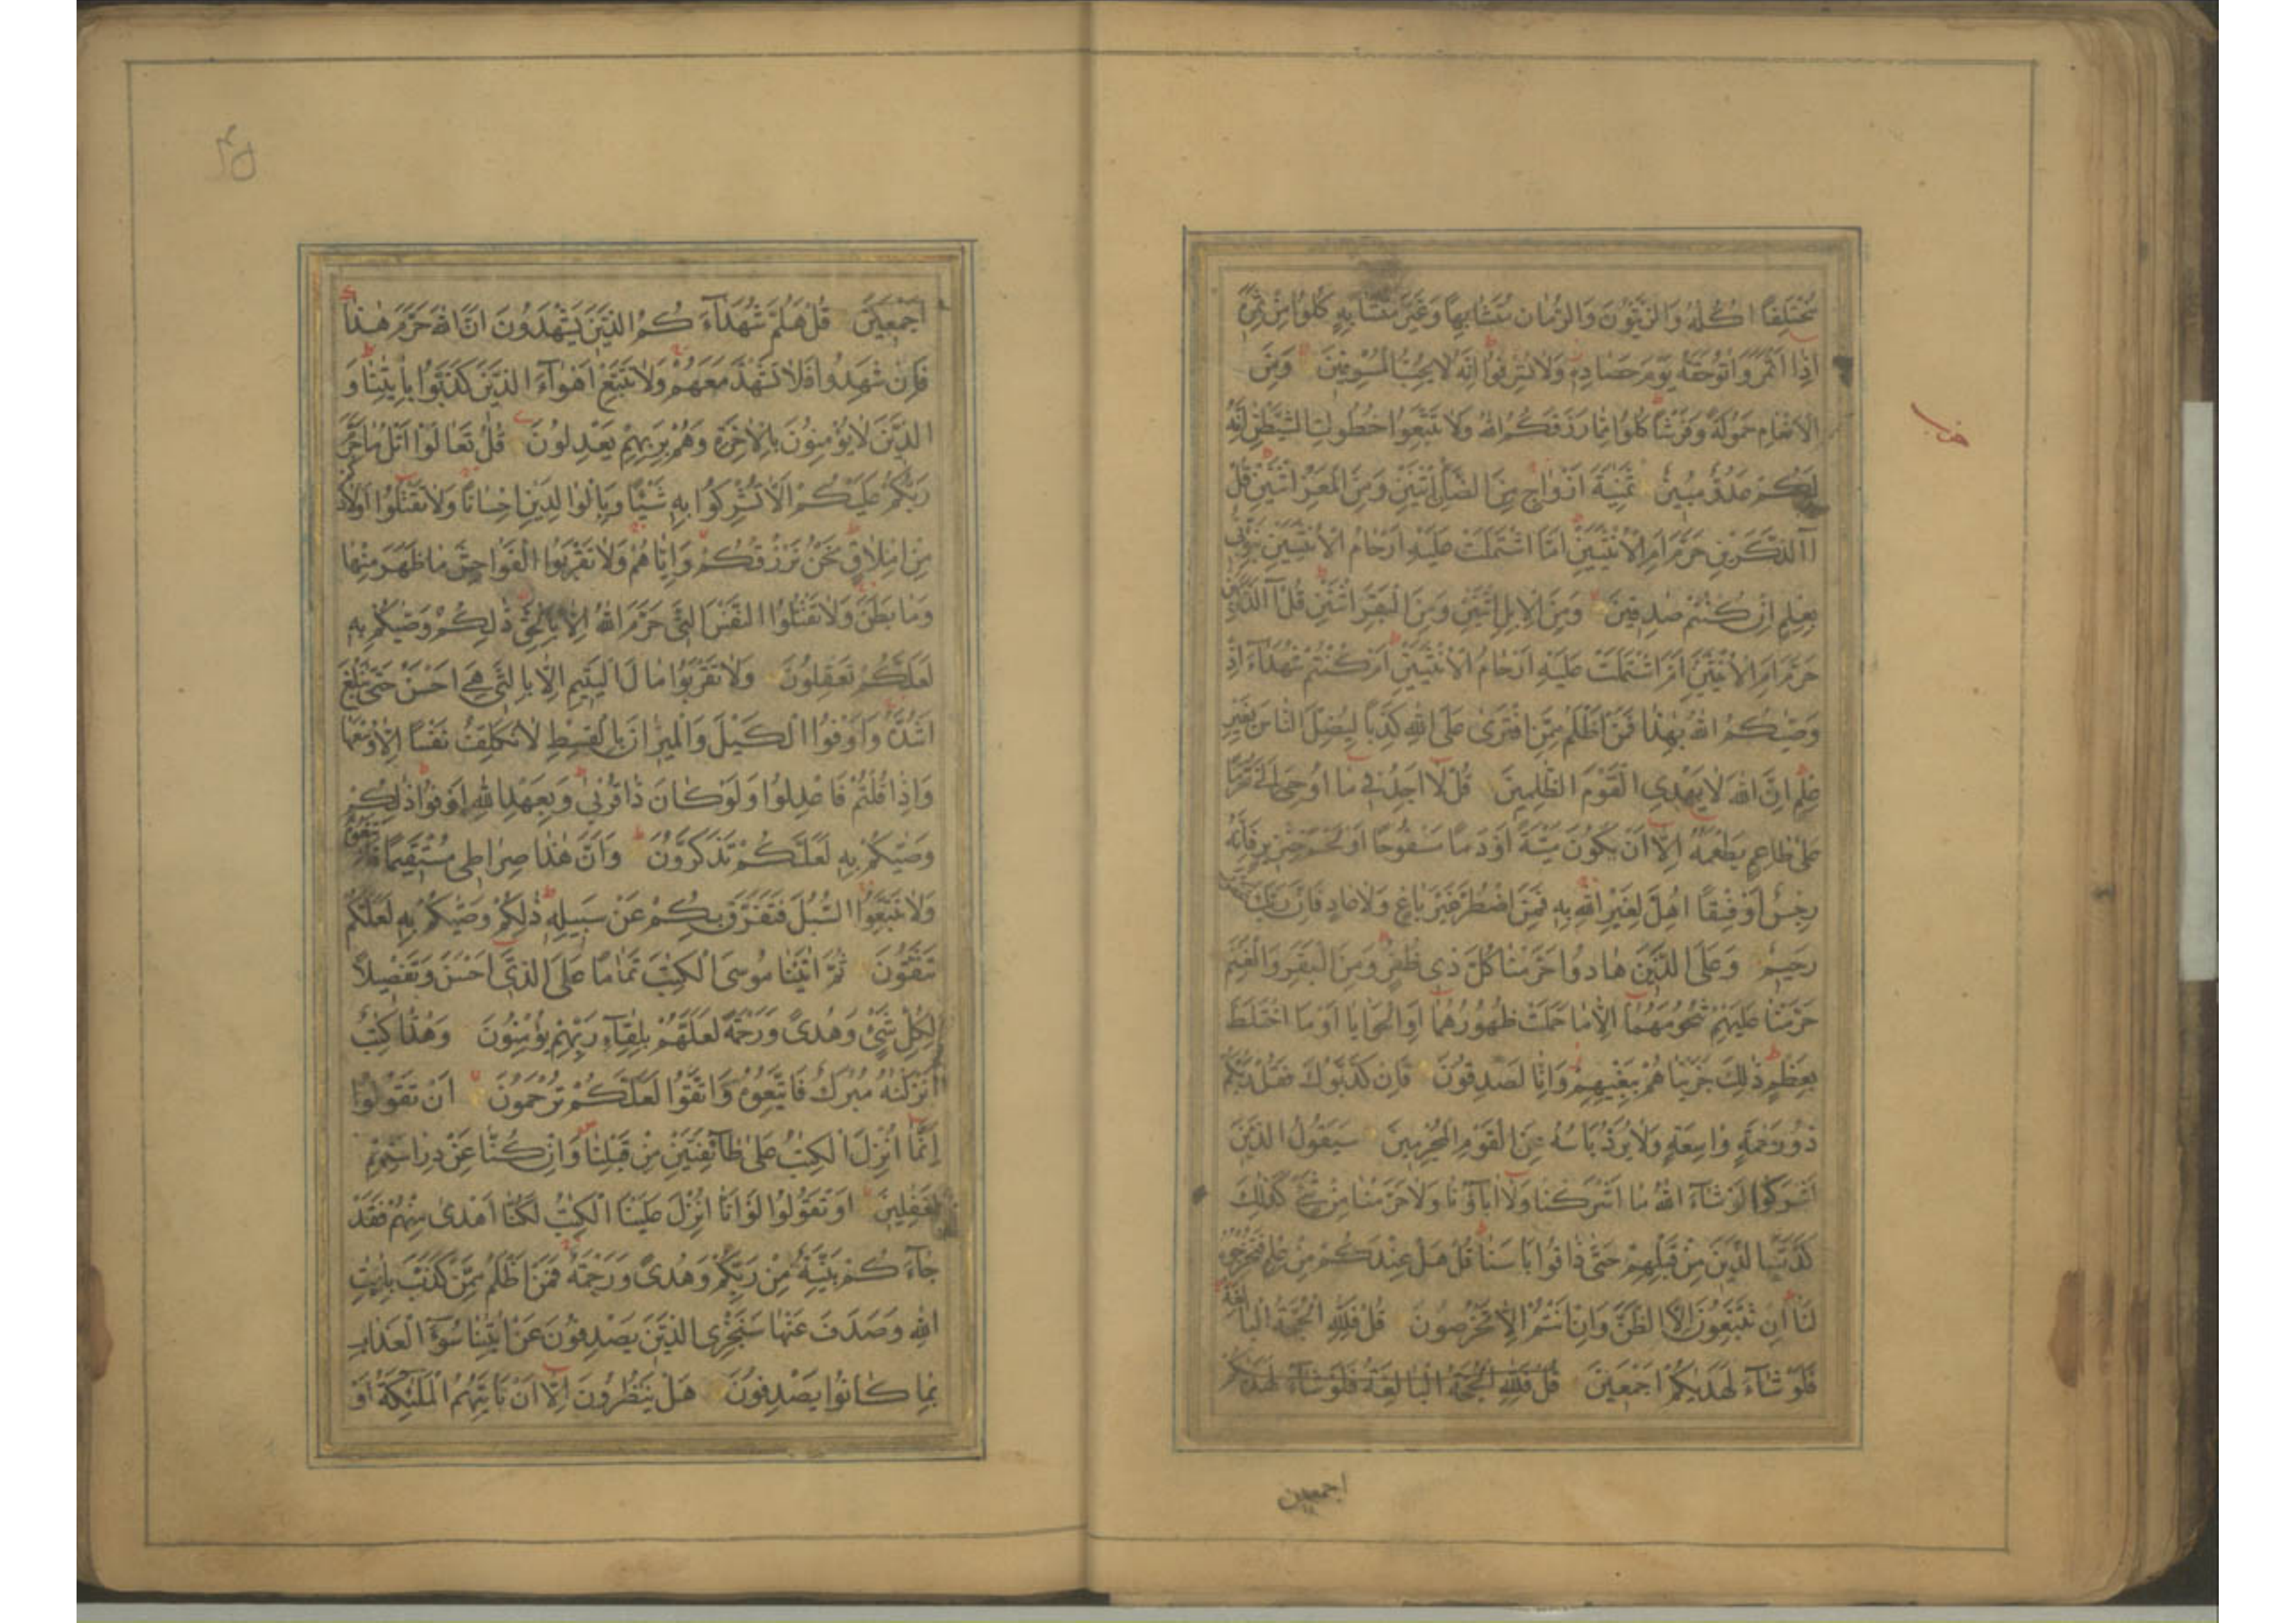 مُخْتَلِفًا اُكُلُهُ وَالزَّيْتُونَ وَالرُّمَّانَ مُتَشَابِهًا وَغَيْرَ مُتَشَابِهٍ كُلُوا مِنْ ثَمَرِهٖ
اِذَا اَثْمَرَ وَاٰتُوا حَقَّهُ يَوْمَ حَصَادِهٖ وَلَا تُسْرِفُوا اِنَّهُ لَا يُحِبُّ الْمُسْرِفِينَ وَمِنَ
الْاَنْعَامِ حَمُولَةً وَفَرْشًا كُلُوا مِمَّا رَزَقَكُمُ اللّٰهُ وَلَا تَتَّبِعُوا خُطُوٰتِ الشَّيْطٰنِ اِنَّهُ
لَكُمْ عَدُوٌّ مُبِينٌ ثَمٰنِيَةَ اَزْوَاجٍ مِنَ الضَّاْنِ اثْنَيْنِ وَمِنَ الْمَعْزِ اثْنَيْنِ قُلْ
آالذَّكَرَيْنِ حَرَّمَ اَمِ الْاُنْثَيَيْنِ اَمَّا اشْتَمَلَتْ عَلَيْهِ اَرْحَامُ الْاُنْثَيَيْنِ نَبِّؤُنِي
بِعِلْمٍ اِنْ كُنْتُمْ صٰدِقِينَ وَمِنَ الْاِبِلِ اثْنَيْنِ وَمِنَ الْبَقَرِ اثْنَيْنِ قُلْ آلذَّكَرَيْنِ
حَرَّمَ اَمِ الْاُنْثَيَيْنِ اَمَّا اشْتَمَلَتْ عَلَيْهِ اَرْحَامُ الْاُنْثَيَيْنِ اَمْ كُنْتُمْ شُهَدَآءَ اِذْ
وَصّٰيكُمُ اللّٰهُ بِهٰذَا فَمَنْ اَظْلَمُ مِمَّنِ افْتَرَى عَلَى اللّٰهِ كَذِبًا لِيُضِلَّ النَّاسَ بِغَيْرِ
عِلْمٍ اِنَّ اللّٰهَ لَا يَهْدِي الْقَوْمَ الظّٰلِمِينَ قُلْ لَا اَجِدُ فِي مَا اُوحِيَ اِلَيَّ مُحَرَّمًا
عَلٰى طَاعِمٍ يَطْعَمُهُ اِلَّا اَنْ يَكُونَ مَيْتَةً اَوْ دَمًا مَسْفُوحًا اَوْ لَحْمَ خِنْزِيرٍ فَاِنَّهُ
رِجْسٌ اَوْ فِسْقًا اُهِلَّ لِغَيْرِ اللّٰهِ بِهٖ فَمَنِ اضْطُرَّ غَيْرَ بَاغٍ وَلَا عَادٍ فَاِنَّ رَبَّكَ غَفُورٌ
رَحِيمٌ وَعَلَى الَّذِينَ هَادُوا حَرَّمْنَا كُلَّ ذِي ظُفُرٍ وَمِنَ الْبَقَرِ وَالْغَنَمِ
حَرَّمْنَا عَلَيْهِمْ شُحُومَهُمَا اِلَّا مَا حَمَلَتْ ظُهُورُهُمَا اَوِ الْحَوَايَا اَوْ مَا اخْتَلَطَ
بِعَظْمٍ ذٰلِكَ جَزَيْنَاهُمْ بِبَغْيِهِمْ وَاِنَّا لَصٰدِقُونَ فَاِنْ كَذَّبُوكَ فَقُلْ رَبُّكُمْ
ذُو رَحْمَةٍ وَاسِعَةٍ وَلَا يُرَدُّ بَاْسُهُ عَنِ الْقَوْمِ الْمُجْرِمِينَ سَيَقُولُ الَّذِينَ
اَشْرَكُوا لَوْ شَآءَ اللّٰهُ مَا اَشْرَكْنَا وَلَا اٰبَآؤُنَا وَلَا حَرَّمْنَا مِنْ شَيْءٍ كَذٰلِكَ
كَذَّبَ الَّذِينَ مِنْ قَبْلِهِمْ حَتّٰى ذَاقُوا بَاْسَنَا قُلْ هَلْ عِنْدَكُمْ مِنْ عِلْمٍ فَتُخْرِجُوهُ
لَنَا اِنْ تَتَّبِعُونَ اِلَّا الظَّنَّ وَاِنْ اَنْتُمْ اِلَّا تَخْرُصُونَ قُلْ فَلِلّٰهِ الْحُجَّةُ الْبَالِغَةُ
فَلَوْ شَآءَ لَهَدٰيكُمْ اَجْمَعِينَ قُلْ فَلِلّٰهِ الْحُجَّةُ الْبَالِغَةُ فَلَوْ شَآءَ لَهَدٰيكُمْ
اجمعين
اَجْمَعِينَ قُلْ هَلُمَّ شُهَدَآءَ كُمُ الَّذِينَ يَشْهَدُونَ اَنَّ اللّٰهَ حَرَّمَ هٰذَا
فَاِنْ شَهِدُوا فَلَا تَشْهَدْ مَعَهُمْ وَلَا تَتَّبِعْ اَهْوَآءَ الَّذِينَ كَذَّبُوا بِاٰيٰتِنَا وَ
الَّذِينَ لَا يُؤْمِنُونَ بِالْاٰخِرَةِ وَهُمْ بِرَبِّهِمْ يَعْدِلُونَ قُلْ تَعَالَوْا اَتْلُ مَا حَرَّمَ
رَبُّكُمْ عَلَيْكُمْ اَلَّا تُشْرِكُوا بِهٖ شَيْئًا وَبِالْوَالِدَيْنِ اِحْسَانًا وَلَا تَقْتُلُوا اَوْلَادَكُمْ
مِنْ اِمْلَاقٍ نَحْنُ نَرْزُقُكُمْ وَاِيَّاهُمْ وَلَا تَقْرَبُوا الْفَوَاحِشَ مَا ظَهَرَ مِنْهَا
وَمَا بَطَنَ وَلَا تَقْتُلُوا النَّفْسَ الَّتِي حَرَّمَ اللّٰهُ اِلَّا بِالْحَقِّ ذٰلِكُمْ وَصّٰيكُمْ بِهٖ
لَعَلَّكُمْ تَعْقِلُونَ وَلَا تَقْرَبُوا مَالَ الْيَتِيمِ اِلَّا بِالَّتِي هِيَ اَحْسَنُ حَتّٰى يَبْلُغَ
اَشُدَّهُ وَاَوْفُوا الْكَيْلَ وَالْمِيزَانَ بِالْقِسْطِ لَا نُكَلِّفُ نَفْسًا اِلَّا وُسْعَهَا
وَاِذَا قُلْتُمْ فَاعْدِلُوا وَلَوْ كَانَ ذَا قُرْبٰى وَبِعَهْدِ اللّٰهِ اَوْفُوا ذٰلِكُمْ
وَصّٰيكُمْ بِهٖ لَعَلَّكُمْ تَذَكَّرُونَ وَاَنَّ هٰذَا صِرَاطِي مُسْتَقِيمًا فَاتَّبِعُوهُ
وَلَا تَتَّبِعُوا السُّبُلَ فَتَفَرَّقَ بِكُمْ عَنْ سَبِيلِهٖ ذٰلِكُمْ وَصّٰيكُمْ بِهٖ لَعَلَّكُمْ
تَتَّقُونَ ثُمَّ اٰتَيْنَا مُوسَى الْكِتٰبَ تَمَامًا عَلَى الَّذِي اَحْسَنَ وَتَفْصِيلًا
لِكُلِّ شَيْءٍ وَهُدًى وَرَحْمَةً لَعَلَّهُمْ بِلِقَآءِ رَبِّهِمْ يُؤْمِنُونَ وَهٰذَا كِتٰبٌ
اَنْزَلْنٰهُ مُبٰرَكٌ فَاتَّبِعُوهُ وَاتَّقُوا لَعَلَّكُمْ تُرْحَمُونَ اَنْ تَقُولُوا
اِنَّمَا اُنْزِلَ الْكِتٰبُ عَلٰى طَآئِفَتَيْنِ مِنْ قَبْلِنَا وَاِنْ كُنَّا عَنْ دِرَاسَتِهِمْ
لَغٰفِلِينَ اَوْ تَقُولُوا لَوْ اَنَّا اُنْزِلَ عَلَيْنَا الْكِتٰبُ لَكُنَّا اَهْدٰى مِنْهُمْ فَقَدْ
جَآءَكُمْ بَيِّنَةٌ مِنْ رَبِّكُمْ وَهُدًى وَرَحْمَةٌ فَمَنْ اَظْلَمُ مِمَّنْ كَذَّبَ بِاٰيٰتِ
اللّٰهِ وَصَدَفَ عَنْهَا سَنَجْزِي الَّذِينَ يَصْدِفُونَ عَنْ اٰيٰتِنَا سُوٓءَ الْعَذَابِ
بِمَا كَانُوا يَصْدِفُونَ هَلْ يَنْظُرُونَ اِلَّا اَنْ تَاْتِيَهُمُ الْمَلٰٓئِكَةُ اَوْ